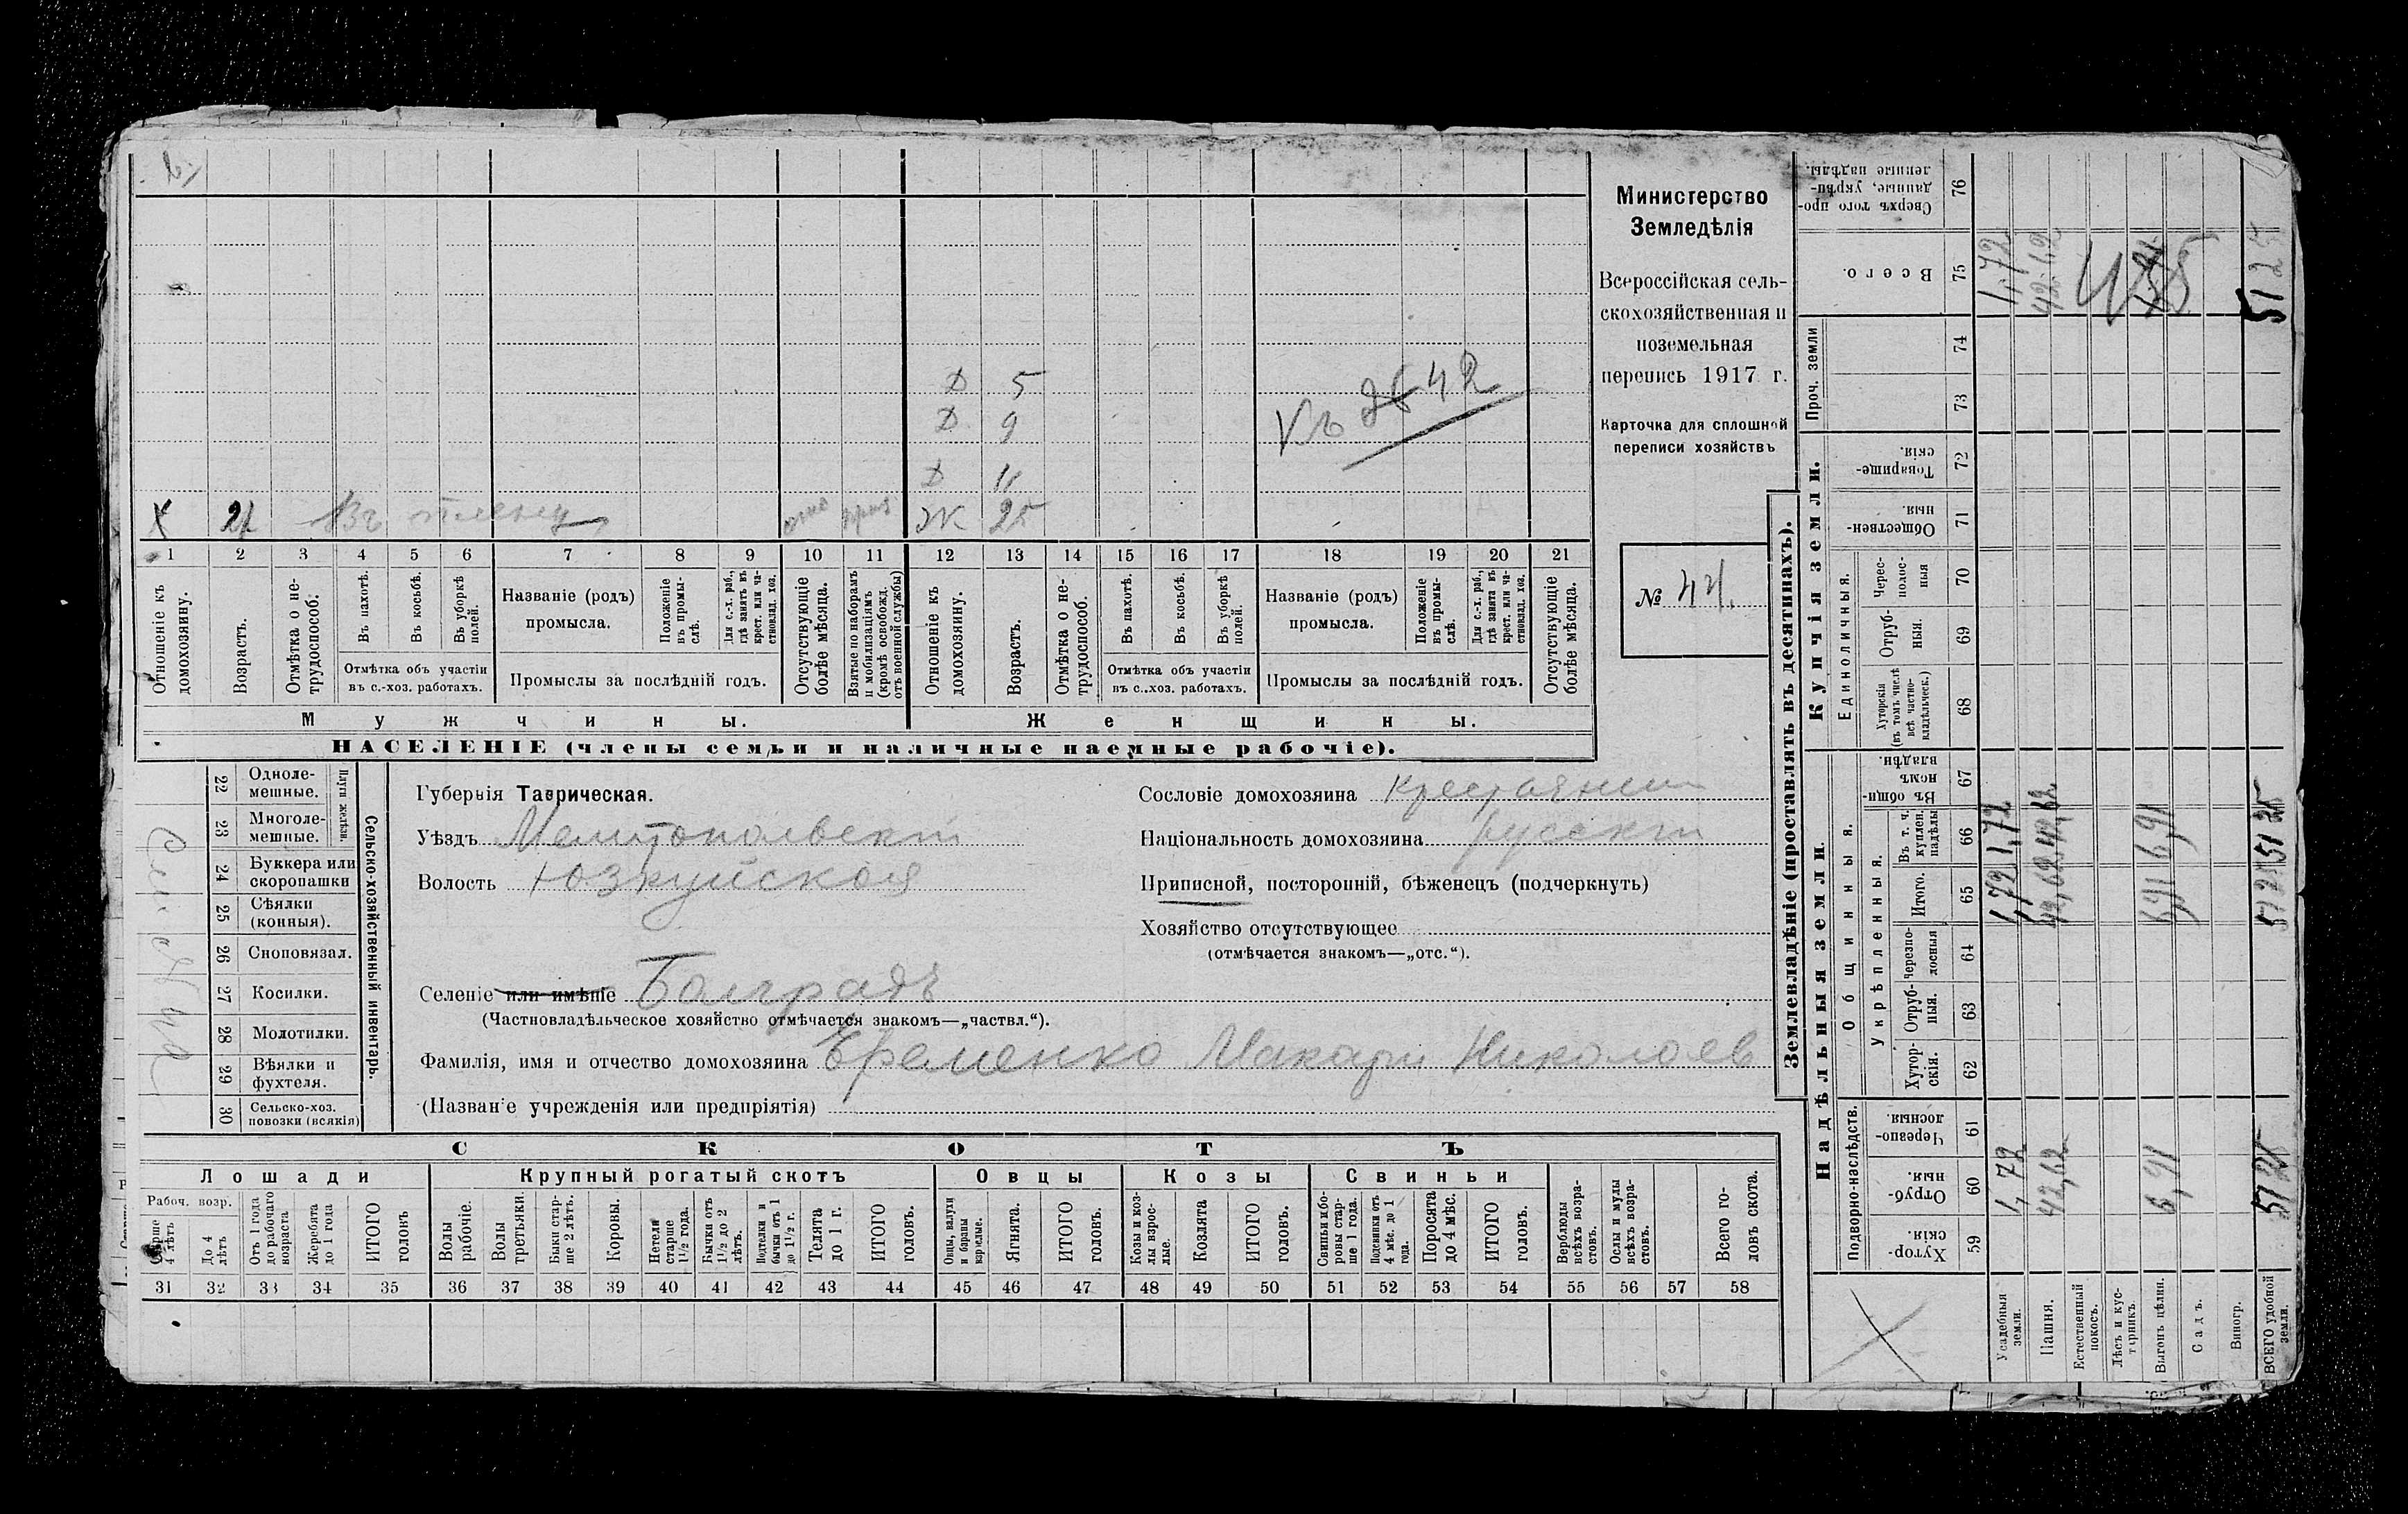 Министерство
Земледѣлія
Всероссійская сель-
скохозяйственная и
поземельная
перепись 1917 г.
Карточка для сплошной
переписи хозяйствъ
№ 44.
Д 5
Д 9
Д 11
Х 21 Въ плену Ж 25
Къ 42
1 2 3 4 5 6 7 8 9 10 11 12 13 14 15 16 17 18 19 20 21
Отношеніе къ домохозяину.
Возрастъ.
Отмѣтка о не-трудоспособ.
Въ пахотѣ.
Въ косьбѣ.
Въ уборкѣ полей.
Отмѣтка объ участіи въ с.-хоз. работахъ.
Названіе (родъ) промысла.
Положеніе въ промы-слѣ.
Для с.-х. раб., гдѣ занятъ въ крест. или ча-стновлад. хоз.
Промыслы за послѣдній годъ.
Отсутствующіе болѣе мѣсяца.
Взятые по наборамъ и мобилизаціямъ (кромѣ освобожд. отъ военной службы)
Отношеніе къ домохозяину.
Возрастъ.
Отмѣтка о не-трудоспособ.
Въ пахотѣ.
Въ косьбѣ.
Въ уборкѣ полей.
Отмѣтка объ участіи въ с..хоз. работахъ.
Названіе (родъ) промысла.
Положеніе въ промы-слѣ.
Для с.-х. раб., гдѣ занята въ крест. или ча-стновлад. хоз.
Промыслы за послѣдній годъ.
Отсутствующіе болѣе мѣсяца.
Мужчины. Женщины.
НАСЕЛЕНІЕ (члены семьи и наличные наемные рабочіе).
Сельско-хозяйственный инвентарь.
Плуги желѣзн.
22 Одноле-мешные.
23 Многоле-мешные.
24 Буккера или скоропашки
25 Сѣялки (конныя).
26 Сноповязал.
27 Косилки.
28 Молотилки.
29 Вѣялки и фухтеля.
30 Сельско-хоз. повозки (всякія)
Губернія Таврическая.
Уѣздъ Мелитопольскій
Волость Юзкуйская
Селеніе или имѣніе Болградъ
(Частновладѣльческое хозяйство отмѣчается знакомъ—„частвл.“).
Фамилія, имя и отчество домохозяина Еременко Макарій Николаев
(Названіе учрежденія или предпріятія)
Сословіе домохозяина крестьянин
Національность домохозяина русскій
Приписной, посторонній, бѣженецъ (подчеркнуть)
Хозяйство отсутствующее
(отмѣчается знакомъ—„отс.“).
СКОТЪ
Лошади Крупный рогатый скотъ Овцы Козы Свиньи
Рабоч. возр.
Старше 4 лѣтъ
До 4 лѣтъ
Отъ 1 года до рабочаго возраста
Жеребята до 1 года
ИТОГО головъ
Волы рабочіе.
Волы третьяки.
Быки стар-ше 2 лѣтъ.
Коровы.
Нетели старше 1½ года.
Бычки отъ 1½ до 2 лѣтъ.
Подтелки и бычки отъ 1 до 1½ г.
Телята до 1 г.
ИТОГО головъ.
Овцы, валухи и бараны взрослые.
Ягнята.
ИТОГО головъ.
Козы и коз-лы взрос-лые.
Козлята
ИТОГО головъ.
Свиньи и бо-ровы стар-ше 1 года.
Подсвинки отъ 4 мѣс. до 1 года.
Поросята до 4 мѣс.
ИТОГО головъ.
Верблюды всѣхъ возра-стовъ.
Ослы и мулы всѣхъ возра-стовъ.
Всего го-ловъ скота.
31 32 33 34 35 36 37 38 39 40 41 42 43 44 45 46 47 48 49 50 51 52 53 54 55 56 57 58
Землевладѣніе (проставлять въ десятинахъ).
Надѣльныя земли.
Купчія земли.
Проч. земли
Подворно-наслѣдств.
Общинныя.
Укрѣпленныя.
Единоличныя.
59 Хутор-скія.
60 Отруб-ныя.
61 Черезпо-лосныя.
62 Хутор-скія.
63 Отруб-ныя.
64 Черезпо-лосныя
65 Итого.
66 Въ т. ч. куплен. надѣлы
67 Въ общи-номъ владѣн.
68 Хуторскія (въ томъ числѣ всѣ частно-владѣльческ.)
69 Отруб-ныя.
70 Черес-полос-ныя
71 Обществен-ныя.
72 Товарище-скія.
73
74
75 Всего.
76 Сверхъ того про-данные, укрѣп-ленные надѣлы.
Усадебныя земли. 1,72 1,72 1,72 1,72
Пашня. 42,62 42,62 42,62 42,62
Естественный покосъ.
Лѣсъ и кус-тарникъ.
Выгонъ цѣлин. 6,91 6,91 6,91
Садъ.
Виногр.
ВСЕГО удобной земли. 51 25 51 25 51 25 51 25